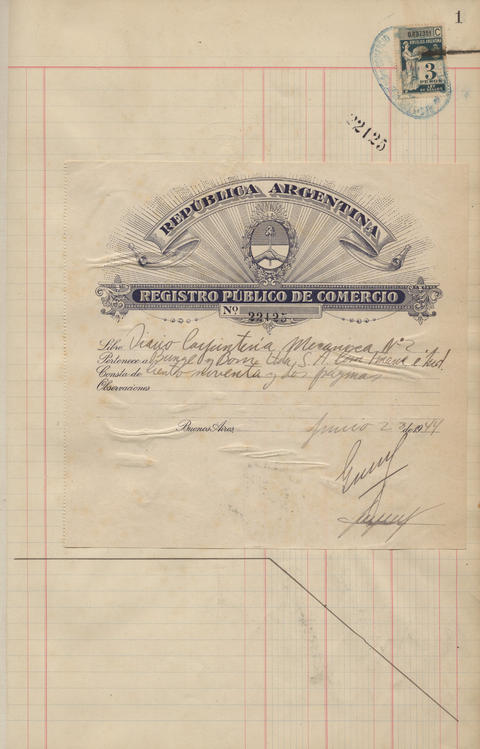 1
REPÚBLICA ARGENTINA
3
PESOS
22125
REPÚBLICA ARGENTINA
REGISTRO PÚBLICO DE COMERCIO
Nº 22125
Libro Diario Carpinteria Mecanica Nº 2
Pertenece a Bunge y Born Ltda S. A. Com
Consta de Ciento noventa y dos paginas
Observaciones
Buenos Aires, Junio 2 de 1944